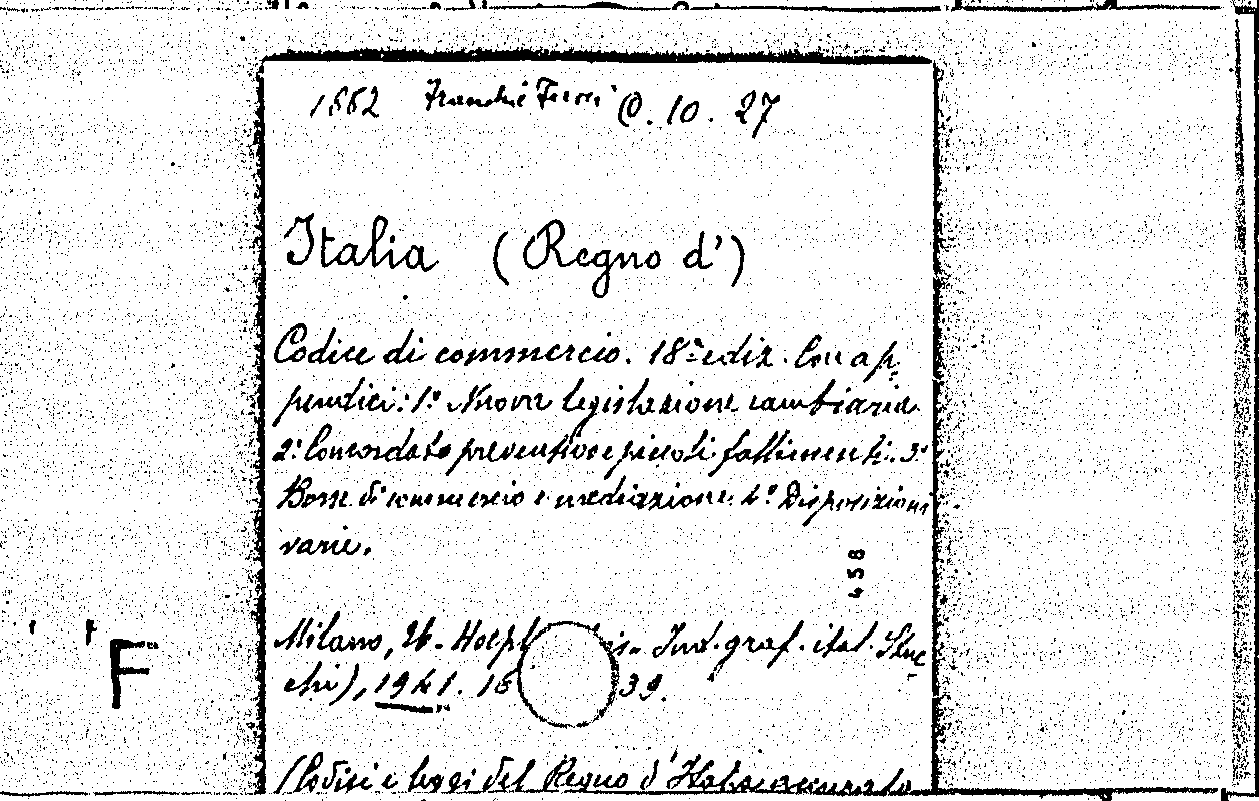 1662 Franchi Ferroni C. 10. 27
Italia (Regno d')
Codice di commercio. 18ª ediz. Con ap-
pendici: 1º Nuova legislazione cambiaria.
2º Concordato preventivo e piccoli fallimenti. 3º
Borse di commercio e mediazione. 4º Disposizioni
varie.
458
Milano, U. Hoepli Ind. graf. ital. Stuc-
chi), 1941. 16 39.
F
(Codici e leggi del Regno d'Italia accurata